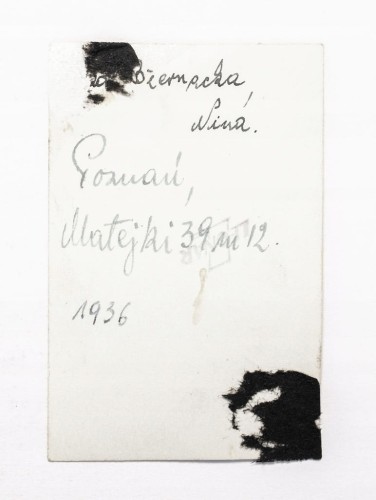 Biernacka
Nina.
Poznań,
Matejki 39 m 12.
1936